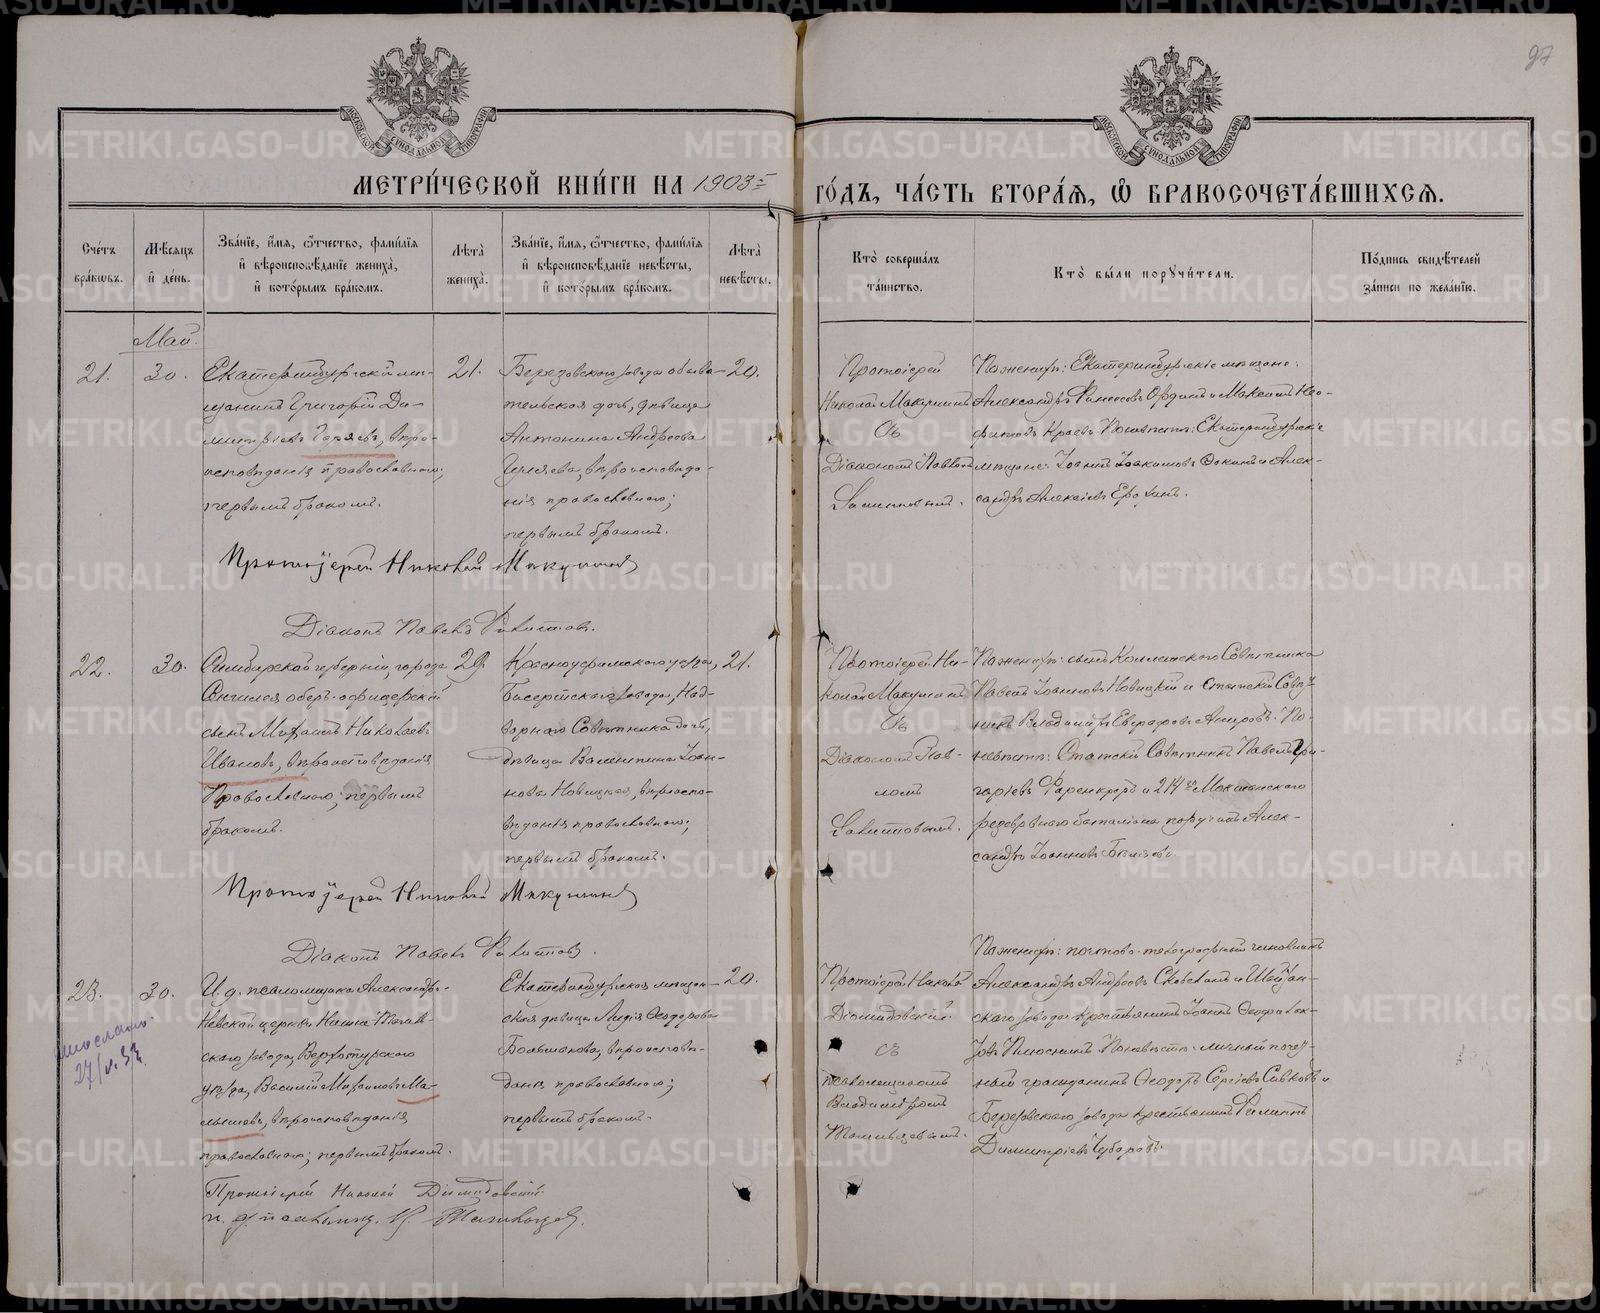 97
МОСКОВСКОЙ СѴНОДАЛЬНОЙ ТИПОГРАФІИ
МОСКОВСКОЙ СѴНОДАЛЬНОЙ ТИПОГРАФІИ
МЕТРИ́ЧЕСКОЙ КНИ́ГИ НА 1903 г. ГО́ДЪ, ЧА́СТЬ ВТОРА́Я, Ѡ҆ БРАКОСОЧЕТА́ВШИХСЯ.
Сче́тъ бра́кѡвъ.
Мѣ́сяцъ и҆ де́нь.
Зва́нїе, и҆́мя, ѻ҆́тчество, фами́лїя и҆ вѣроисповѣ́данїе жениха̀, и҆ кото́рымъ бра́комъ.
Лѣта̀ жениха̀.
Зва́нїе, и҆́мя, ѻ҆́тчество, фами́лїя и҆ вѣроисповѣ́данїе невѣ́сты, и҆ кото́рымъ бра́комъ.
Лѣта̀ невѣ́сты.
Кто̀ соверша́лъ та́инство.
Кто̀ бы́ли порꙋчи́тели.
По́дпись свидѣ́телей за́писи по жела́нїю.
Май.
21.
30.
Екатеринбургскій мѣ-
щанинъ Григорій Ди-
митріевъ вѣро-
исповѣданія православнаго;
первымъ бракомъ.
21.
Березовскаго завода обыва-
тельская дочь, дѣвица
Антонина Андреева
вѣроисповѣда-
нія православнаго;
первымъ бракомъ.
20.
Протоіерей
Николай Макушинъ
Съ
Діакономъ Павломъ
Поженихѣ: Екатеринбургскіе мѣщане:
Александръ Ординъ и Максимъ Нео-
фитовъ Краевъ. Поневѣстѣ: Екатеринбургскіе
мѣщане: Іоаннъ Іоакимовъ и Алек-
сандръ Алексѣевъ Ерохинъ.
Протоіерей Николай Макушинъ
Діаконъ Павелъ
22.
30.
Симбирской губерніи, города
Сенгилея оберъ-офицерскій
сынъ Михаилъ Николаевъ
Ивановъ, вѣроисповѣданія
Православнаго; первымъ
бракомъ.
29.
Красноуфимскаго уѣзда,
Бисертскаго завода, Над-
ворнаго Совѣтника дочь,
дѣвица Валентина Іоан-
нова Новицкая, вѣроиспо-
вѣданія православнаго;
первымъ бракомъ.
21.
Протоіерей Ни-
колай Макушинъ
Съ
Діакономъ Пав-
ломъ
Поженихѣ: сынъ Коллежскаго Совѣтника
Павелъ Іоанновъ Новицкій и Статскій Совѣт-
никъ Владиміръ Евграфовъ По-
невѣстѣ: Статскій Совѣтникъ Павелъ Гри-
горьевъ и 214го Мокшанскаго
резервнаго баталіона поручикъ Алек-
сандръ Іоанновъ Бѣляевъ.
Протоіерей Николай Макушинъ
Діаконъ Павелъ
23.
30.
И. д. псаломщика Александро-
Невской церкви Нижне-Тагиль-
скаго завода, Верхотурскаго
уѣзда, Василій Михаиловъ Ма-
лышевъ, вѣроисповѣданія
православнаго; первымъ бракомъ.
Екатеринбургская мѣщан-
ская дѣвица Лидія Ѳеодорова
Большакова, вѣроисповѣ-
данія православнаго;
первымъ бракомъ.
20.
Протоіерей Николай
Діомидовскій
съ
псаломщикомъ
Владиміромъ
Поженихѣ: почтово-телеграфный чиновникъ
Александръ Андреевъ и Шайтан-
скаго завода крестьянинъ Іоаннъ
Плюснинъ. Поневѣстѣ: личный почет-
ный гражданинъ Ѳеодоръ Сергіевъ и
Березовскаго завода крестьянинъ Филиппъ
Димитріевъ Чуваровъ.
Протоіерей Николай Діомидовскій